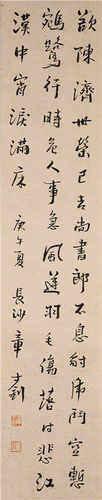 欲陳濟世策已老尚書郎不息豺虎鬥空慙
鵷鷺行時危人事急風逆羽毛傷落日悲江
漢中宵淚滿床 庚午夏 長沙章士釗